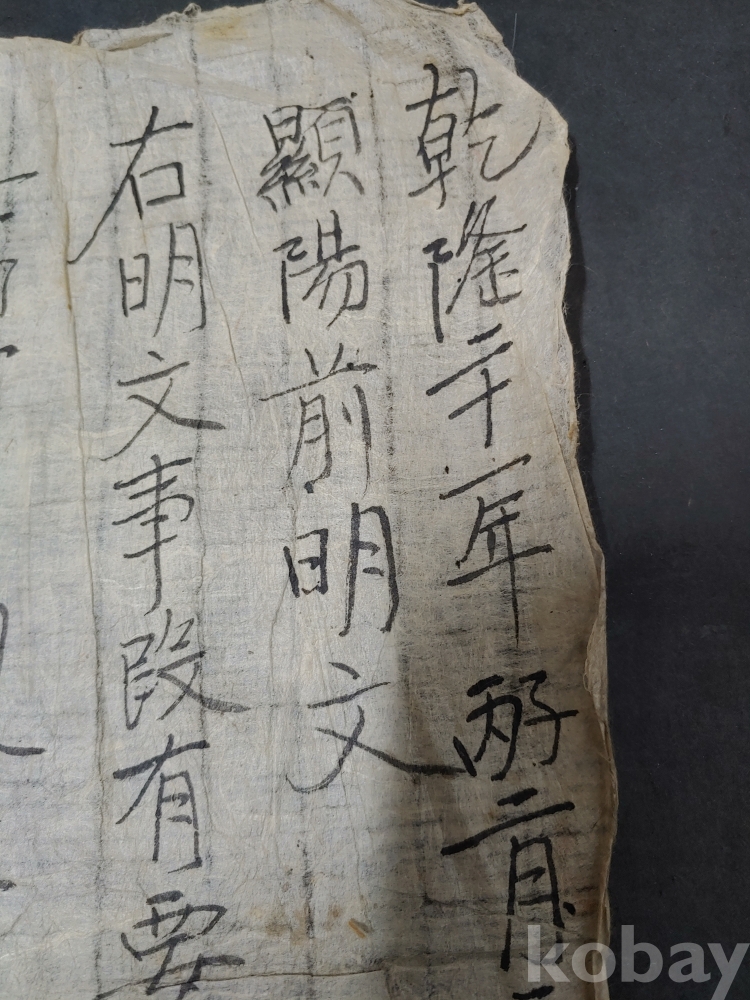 乾隆二十一年丙子二月
顯陽前明文
右明文事段有要
kobay